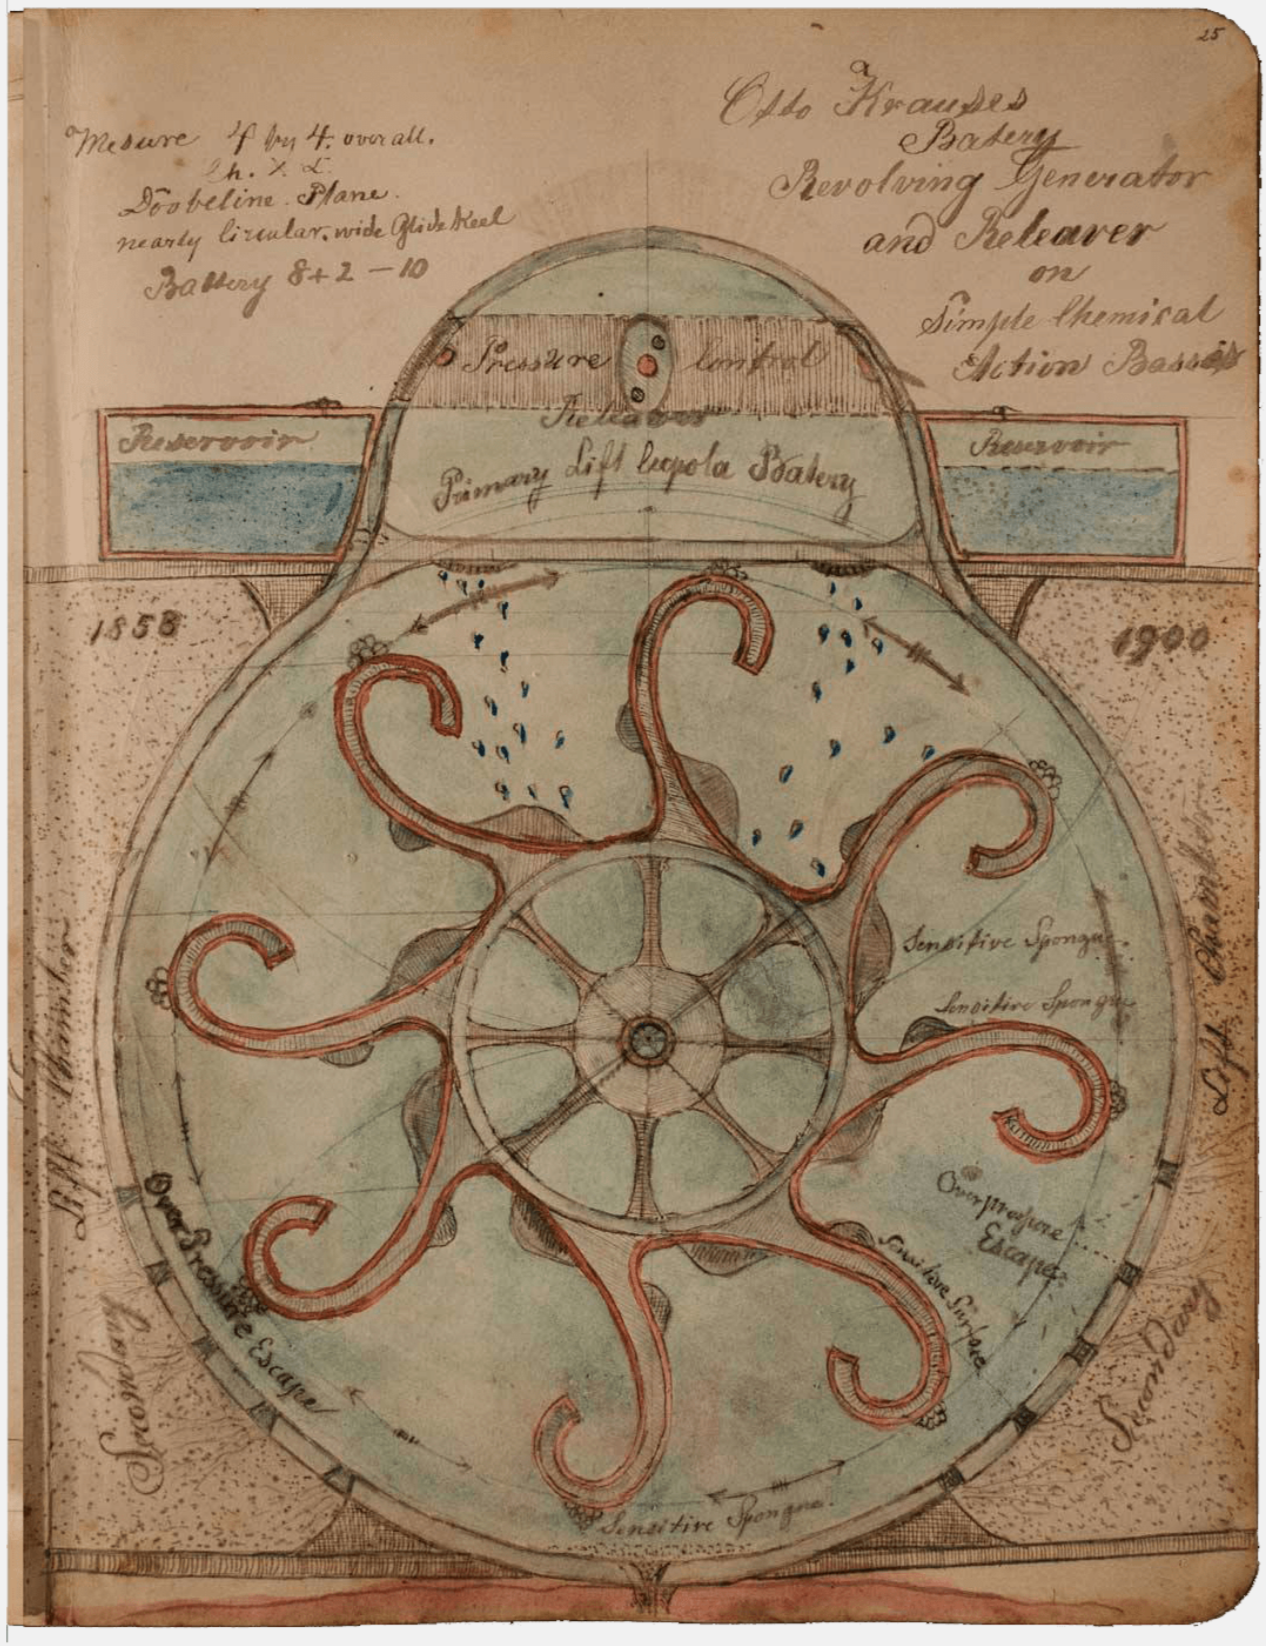 25
Mesure 4 by 4. over all.
Ch. X
Doobeline. Plane.
nearly Circular. wide Glide Keel
Battery 8 + 2 – 10
Otto Krauses
Batery
Revolving Generator
and Releaver
on
Simple Chemical
Action Bassis
Pressure Control
Releaver
Reservoir
Reservoir
Primary Lift Cupola Batery
1858
1900
Sensitive Spongue.
Sensitive Spongue
Lift Chamber
Lift Chamber
Over Pressure Escape
Escape
Sensitive Surface
Secondary
Secondary
Sensitive Spongue.